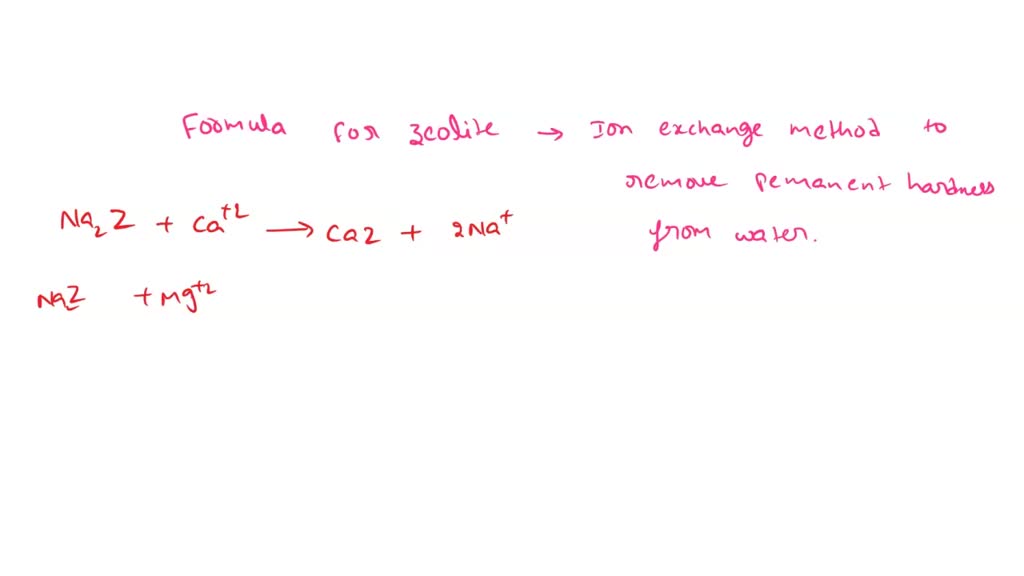 Formula for zeolite → Ion exchange method to
remove pemanent hardness
from water.
Na₂Z + Ca⁺² → CaZ + 2Na⁺
Na₂Z + Mg⁺²